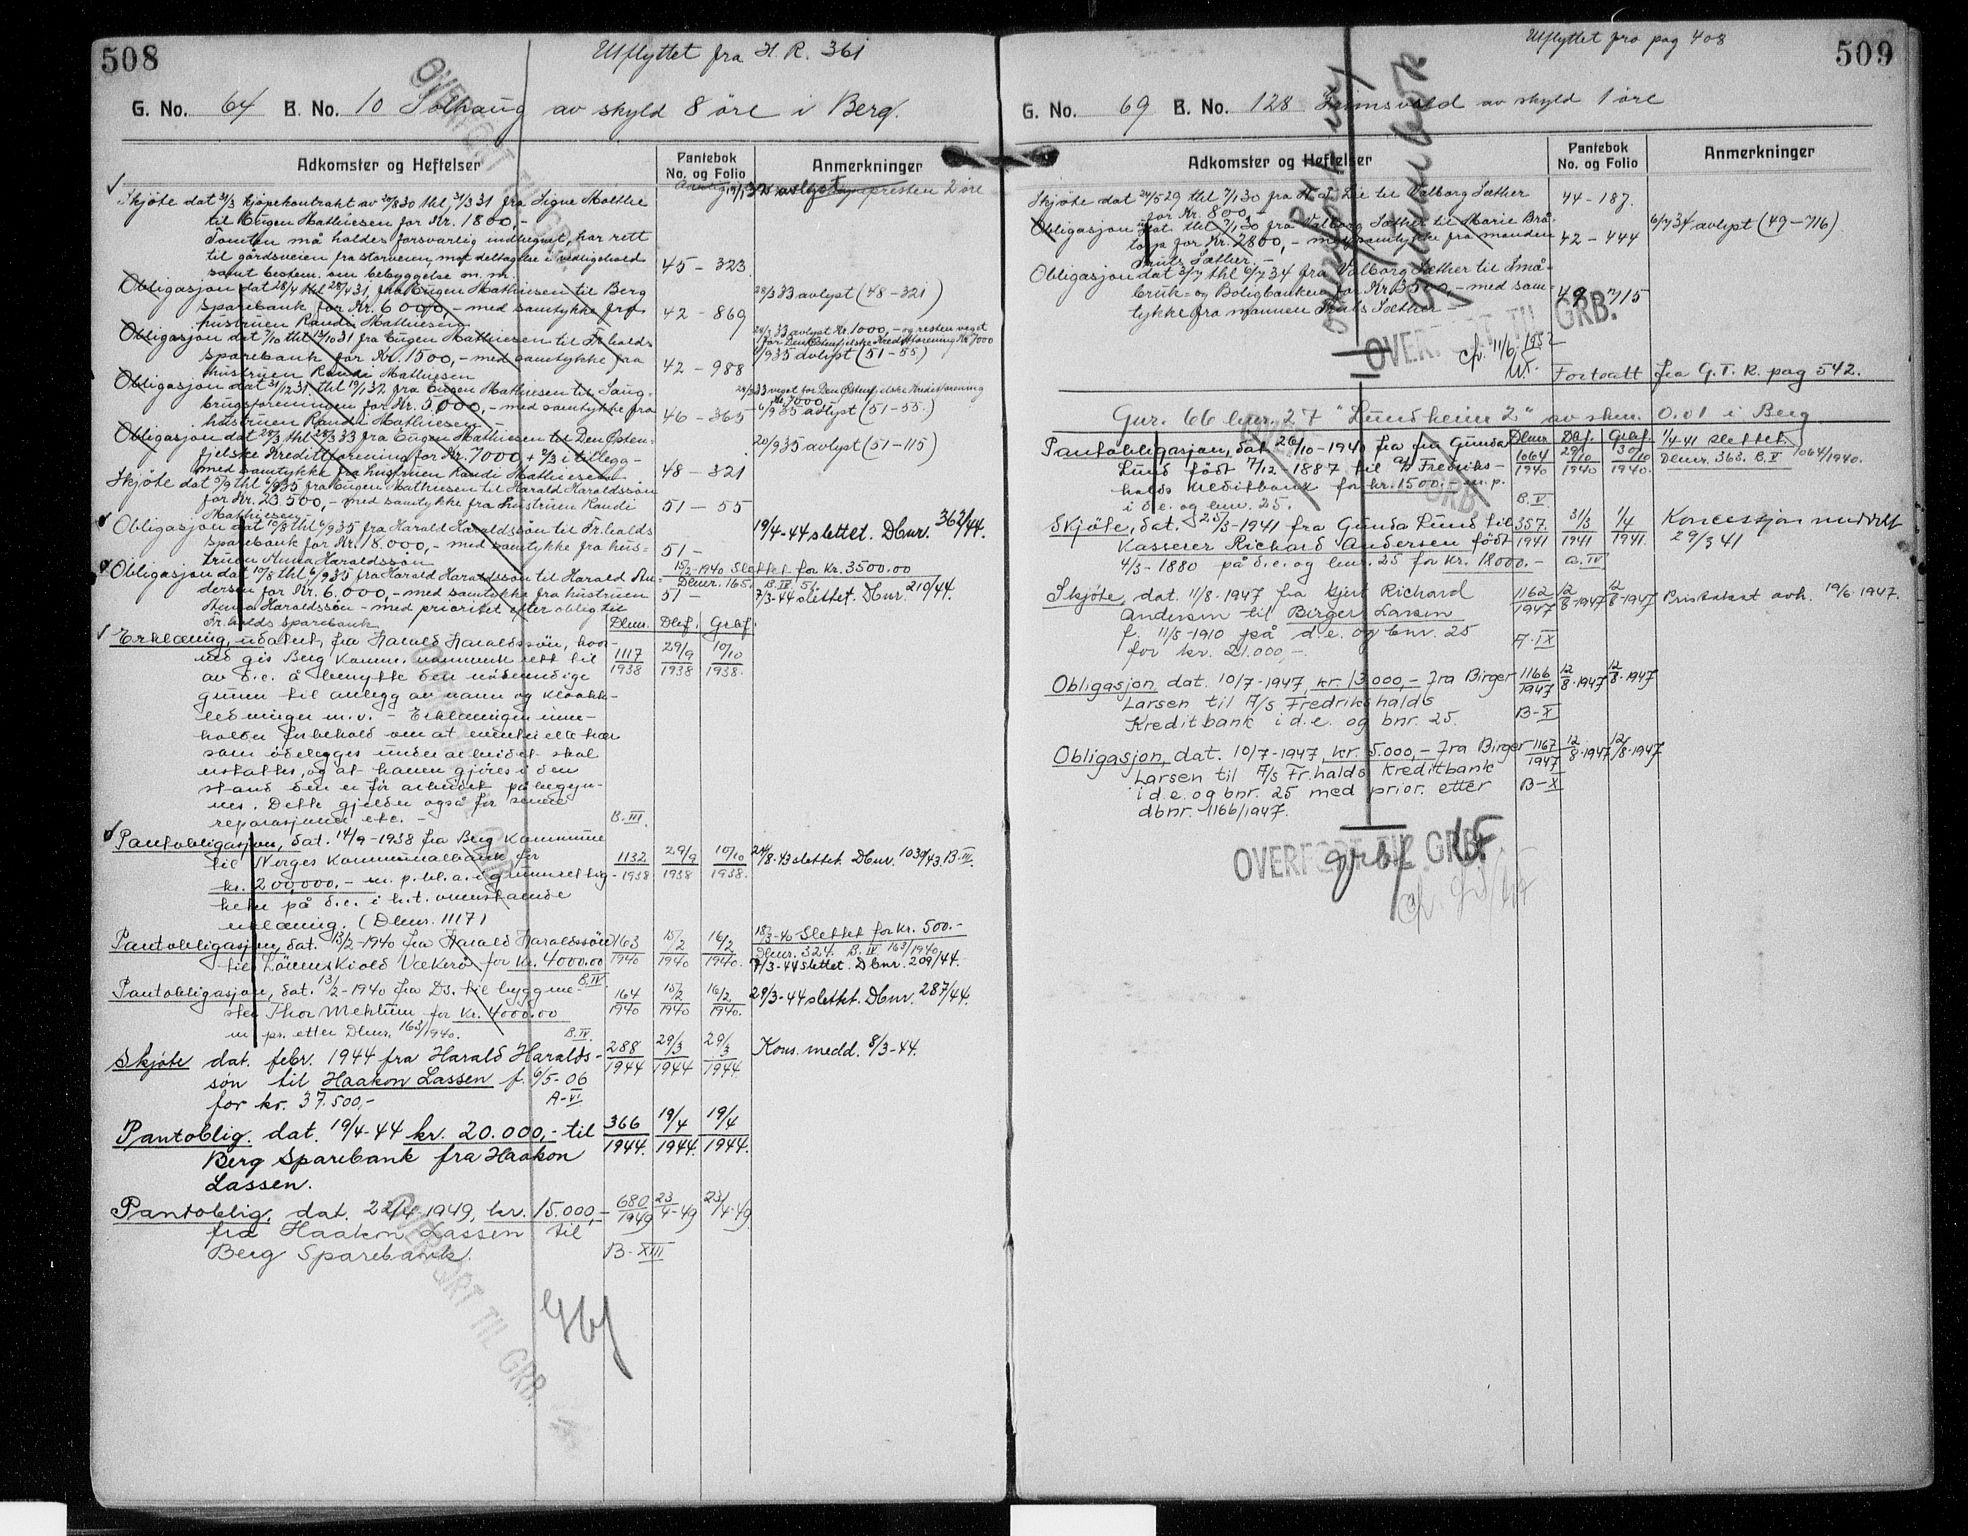 508
Utflyttet fra H. R. 361
G. No. 64 B. No. 10 Solhaug av skyld 8 öre i Berg.
Adkomster og Heftelser
Pantebok No. og Folio
Anmerkninger
Skjöte dat 31/3 kjöpekontrakt av 20/8 30 thl. 31/3 31 fra Signe Molthe
til Eugen Mathiesen for Kr. 1800,-
Tomten må holdes forsvarlig indhegnet, har rett
til gårdsveien fra storveien mot deltagelse i vedligehold
samt bestem. om bebyggelse m. m. 45 - 323
Obligasjon dat 28/4 thl 28/4 31 fra Eugen Mathiesen til Berg
Sparebank for Kr. 6000,- med samtykke fra
hustruen Randi Mathiesen 42 - 869 28/3 33 avlyst (48 - 321)
Obligasjon dat 7/10 thl 13/10 31 fra Eugen Mathiesen til Fr.halds
Sparebank for Kr. 1500,- med samtykke fra
hustruen Randi Mathiesen 42 - 988
28/3 33 avlyst Kr. 1000,- og resten veget
for Den Östenfjelske Kreditforening Kr. 7000
6/9 35 avlyst (51 - 55)
Obligasjon dat 31/12 31 thl 19/1 32 fra Eugen Mathiesen til Laug-
brugsforeningen for Kr. 5000,- med samtykke fra
hustruen Randi Mathiesen - 46 - 365
28/3 33 veget for Den Östenfjelske Kreditforening
Kr. 7000
6/9 35 avlyst (51 - 55)
Obligasjon dat 28/3 thl 28/3 33 fra Eugen Mathiesen til Den Östen-
fjelske Kreditforening for Kr. 7000 + 2/3 i tillegg -
med samtykke fra hustruen Randi Mathiesen 48 - 321
20/9 35 avlyst (51 - 115)
Skjöte dat 5/9 thl 6/9 35 fra Eugen Mathiesen til Harald Haraldssön
for Kr. 23500,- med samtykke fra hustruen Randi
Mathiesen - 51 - 55
Obligasjon dat 10/8 thl 6/9 35 fra Harald Haraldssön til Fr.halds
Sparebank for Kr. 18.000,- med samtykke fra hus-
truen Anna Haraldssön 51 -
19/4-44 slettet. Dbnr. 362/44.
Obligasjon dat 10/8 thl 6/9 35 fra Harald Haraldssön til Harald An-
dersen for Kr. 6.000,- med samtykke fra hustruen
Anna Haraldssön - med prioritet efter oblig til
Fr.halds Sparebank 51 -
15/2-1940 Slettet for kr. 3500.00
Dbnr. 165. B. IV 51.
7/3-44 slettet. Dbnr. 210/44.
Dbnr. Dbf. Grbf.
Erklæring, udatert, fra Harald Haraldssön, hvor-
ved gis Berg Komm. vannverk rett til
av d.e. å benytte den nödvendige
grunn til anlegg av vann og kloakk-
ledninger m.v. - Erklæringen inne-
holder forbehold om at eventuelle trær
som ödelegges under arbeidet skal
erstattes, og at haven gjöres i den
stand den er för arbeidet påbegyn-
nes. Dette gjelder også for senere
reparasjoner etc. -
1117/1938 29/9 1938 10/10 1938. B. III.
Pantobligasjon, dat. 14/9-1938 fra Berg Kommune
til Norges Kommunalbank for
kr. 200,000.- m. p. bl. a. i grunnrettig-
heter på d.e. i h.t. ovenstående
erklæring. (Dbnr. 1117)
1132/1938 29/9 1938 10/10 1938. 24/8-43 slettet. Dbnr. 1039/43. B. III.
Pantobligasjon, dat. 13/2-1940 fra Harald Haraldssön
til Lövenskiold Vækerö for kr. 4000.00 B. IV.
163/1940 15/2 1940 16/2 1940.
18/3-40 Slettet for kr. 500.-
Dbnr. 324. B. IV 163/1940
7/3-44 slettet. Dbnr. 209/44.
Pantobligasjon, dat. 13/2-1940 fra Ds. til byggme-
ster Thor Mehlum for kr. 4000.00
m pr. etter Dbnr. 163/1940. B. IV.
164/1940 15/2 1940 16/2 1940. 29/3-44 slettet. Dbnr. 287/44.
Skjöte dat. febr. 1944 fra Harald Haralds-
søn til Haakon Lassen f. 6/5-06
for kr. 37.500,- A-VI
288/1944 29/3 1944 29/3 1944. Kons. medd. 8/3-44.
Pantoblig. dat. 19/4-44 kr. 20.000,- til
Berg Sparebank fra Haakon
Lassen.
366/1944. 19/4 1944. 19/4 1944.
Pantoblig. dat. 22/4 1949, kr. 15.000,-
fra Haakon Lassen til
Berg Sparebank.
680/1949 23/4-49 23/4-49 B-XIII
OVERFØRT TIL GRB.
OVERFØRT TIL GRB.
509
Utflyttet fra pag 408
G. No. 69 B. No. 128 Grimsvold av skyld 1 öre
Adkomster og Heftelser
Pantebok No. og Folio
Anmerkninger
Skjöte dat 24/5 29 thl 7/1 30 fra H. J. Lie til Valborg Sæther
for Kr. 800,- 44 - 187.
Obligasjon dat. thl 7/1 30 fra Valborg Sæther til Marie Brå-
torp for Kr. 2800,- med samtykke fra manden
Truls Sæther. - 42 - 444 6/7 34 avlyst (49 - 716)
Obligasjon dat 3/7 thl 6/7 34 fra Valborg Sæther til Små-
bruk- og Boligbanken for Kr 3500,- med sam-
tykke fra mannen Truls Sæther - 49 - 715
OVERFØRT TIL GRB.
11/6 1952
Fortsatt fra G. T. R. pag 542.
Gnr. 66 bnr. 27 "Lundheim 2" av sky. 0.01 i Berg
Dbnr. Dbf. Grbf.
Pantobligasjon, dat 26/10-1940 fra frn Gunda
Lund född 7/12 1887 til A/S Fredriks-
halds Kreditbank for kr. 1500.- m. p.
i d.e. og bnr. 25.
1064/1940 29/10 1940 30/10 1940. B. V
1/4 41 Slettet
Dbnr. 363. B. V 1064/1940.
Skjöte, dat. 25/3-1941 fra Gunda Lund til
Kasserer Richard Andersen född
4/3-1880 på d.e. og bnr. 25 for kr. 18000.-
357./1941 31/3 1941 1/4 1941. A. IV
Koncessjon meddelt
29/3 41
Skjöte, dat. 11/8-1947 fra Gjert Richard
Andersen til Birger Larsen
f. 11/5-1910 på d.e. og bnr. 25
for kr. 21.000,-
1162/1947 12/8-1947 12/8-1947 A-IX
Pristakst avh. 19/6-1947.
Obligasjon dat. 10/7-1947, kr. 13.000,- fra Birger
Larsen til A/S Fredrikshalds
Kreditbank i d.e. og bnr. 25.
1166/1947 12/8-1947 12/8-1947 B-X
Obligasjon, dat. 10/7-1947, kr. 5.000,- fra Birger
Larsen til A/S Fr.halds Kreditbank
i d.e. og bnr. 25 med prior. etter
dbnr. 1166/1947.
1167/1947 12/8-1947 12/8-1947 B-X
OVERFØRT TIL GRB.